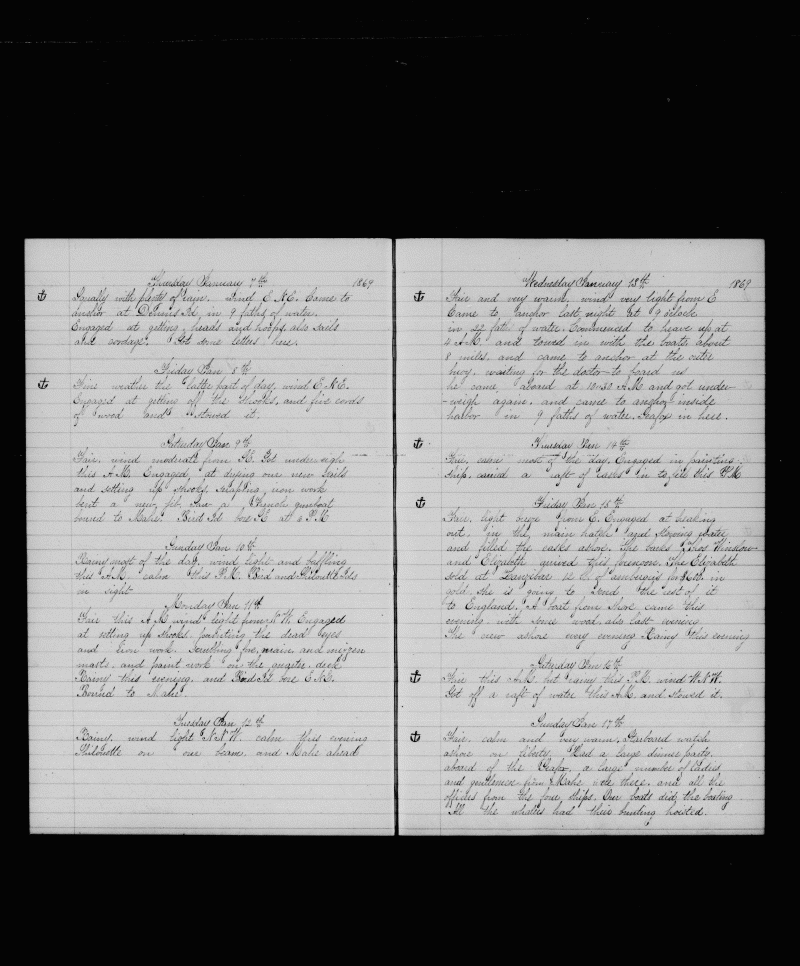 Thursday January 7th 1869
Squally with plenty of rain. wind E.N.E. Came to
anchor at Dennis Isd, in 9 faths of water.
Engaged at getting heads and hoops, also sails
and cordage. Got some letters here.
Friday Jan 8th
Fine weather the latter part of day, wind E.N.E.
Engaged at getting off the shooks, and five cords
of wood and stowed it.
Saturday Jan 9th
Fair, wind moderate from NE. Got under-eigh
this A.M. Engaged at drying our new sails
and setting up shooks, scraping, iron work
bent a new jib. Saw a French gunboat
bound to Mahe. Bird Isd bore SE at 6 P.M
Sunday Jan 10th
Rainy most of the day, wind light and baffling
this A.M. calm this P.M. Bird and Silouette Isds
in sight
Monday Jan 11th
Fair this A.M. wind light from N.W. Engaged
at setting up shooks. painting the dead eyes
and iron work. Scrubbing fore, main, and mizzen
masts. and paint work on the quarter deck
Rainy this evening, and Bird Isd bore E.N.E.
Bound to Mahe
Tuesday Jan 12th
Rainy. wind light N.N.W. calm this evening
Siloutte on our beam and Mahe ahead
Wednesday January 13th 1869
Fair and very warm, wind very light from E
Came to anchor last night at 9 oclock
in 22 faths of water. Commenced to heave up at
4 A.M. and towed in with the boats about
8 miles. and came to anchor at the outer
buoy, waiting for the doctor to board us
he came aboard at 10.30 A.M and got under-
-weigh again. and came to anchor inside
harbor in 9 faths of water. in here.
Thursday Jan 14th
Fair, calm most of the day. Engaged in painting
ship. carried a raft of casks in to fill this P.M
Friday Jan 15th
Fair, light breeze from E. Engaged at breaking
out in the main hatch and stowing water
and filled the casks ashore. The barks Eros Winslow
and Elizabeth arrived this forenoon. The Elizabeth
sold at Zanzibar 12 lb of ambergris for in
gold. she is going to send the rest of it
to England. A boat from shore came this
evening with some wood, also last evening.
The crew ashore every evening. Rainy this evening
Saturday Jan 16th
Fair this A.M. but rainy this P.M. wind W.N.W.
Got off a raft of water this A.M. and stowed it.
Sunday Jan 17th
Fair, calm and very warm, Starboard watch
ashore on liberty. Had a large dinner party
aboard of the a large number of ladies
and gentlemen from Mahe were there. and all the
officers from the four ships. Our boats did the boating
All the whalers had their bunting hoisted.